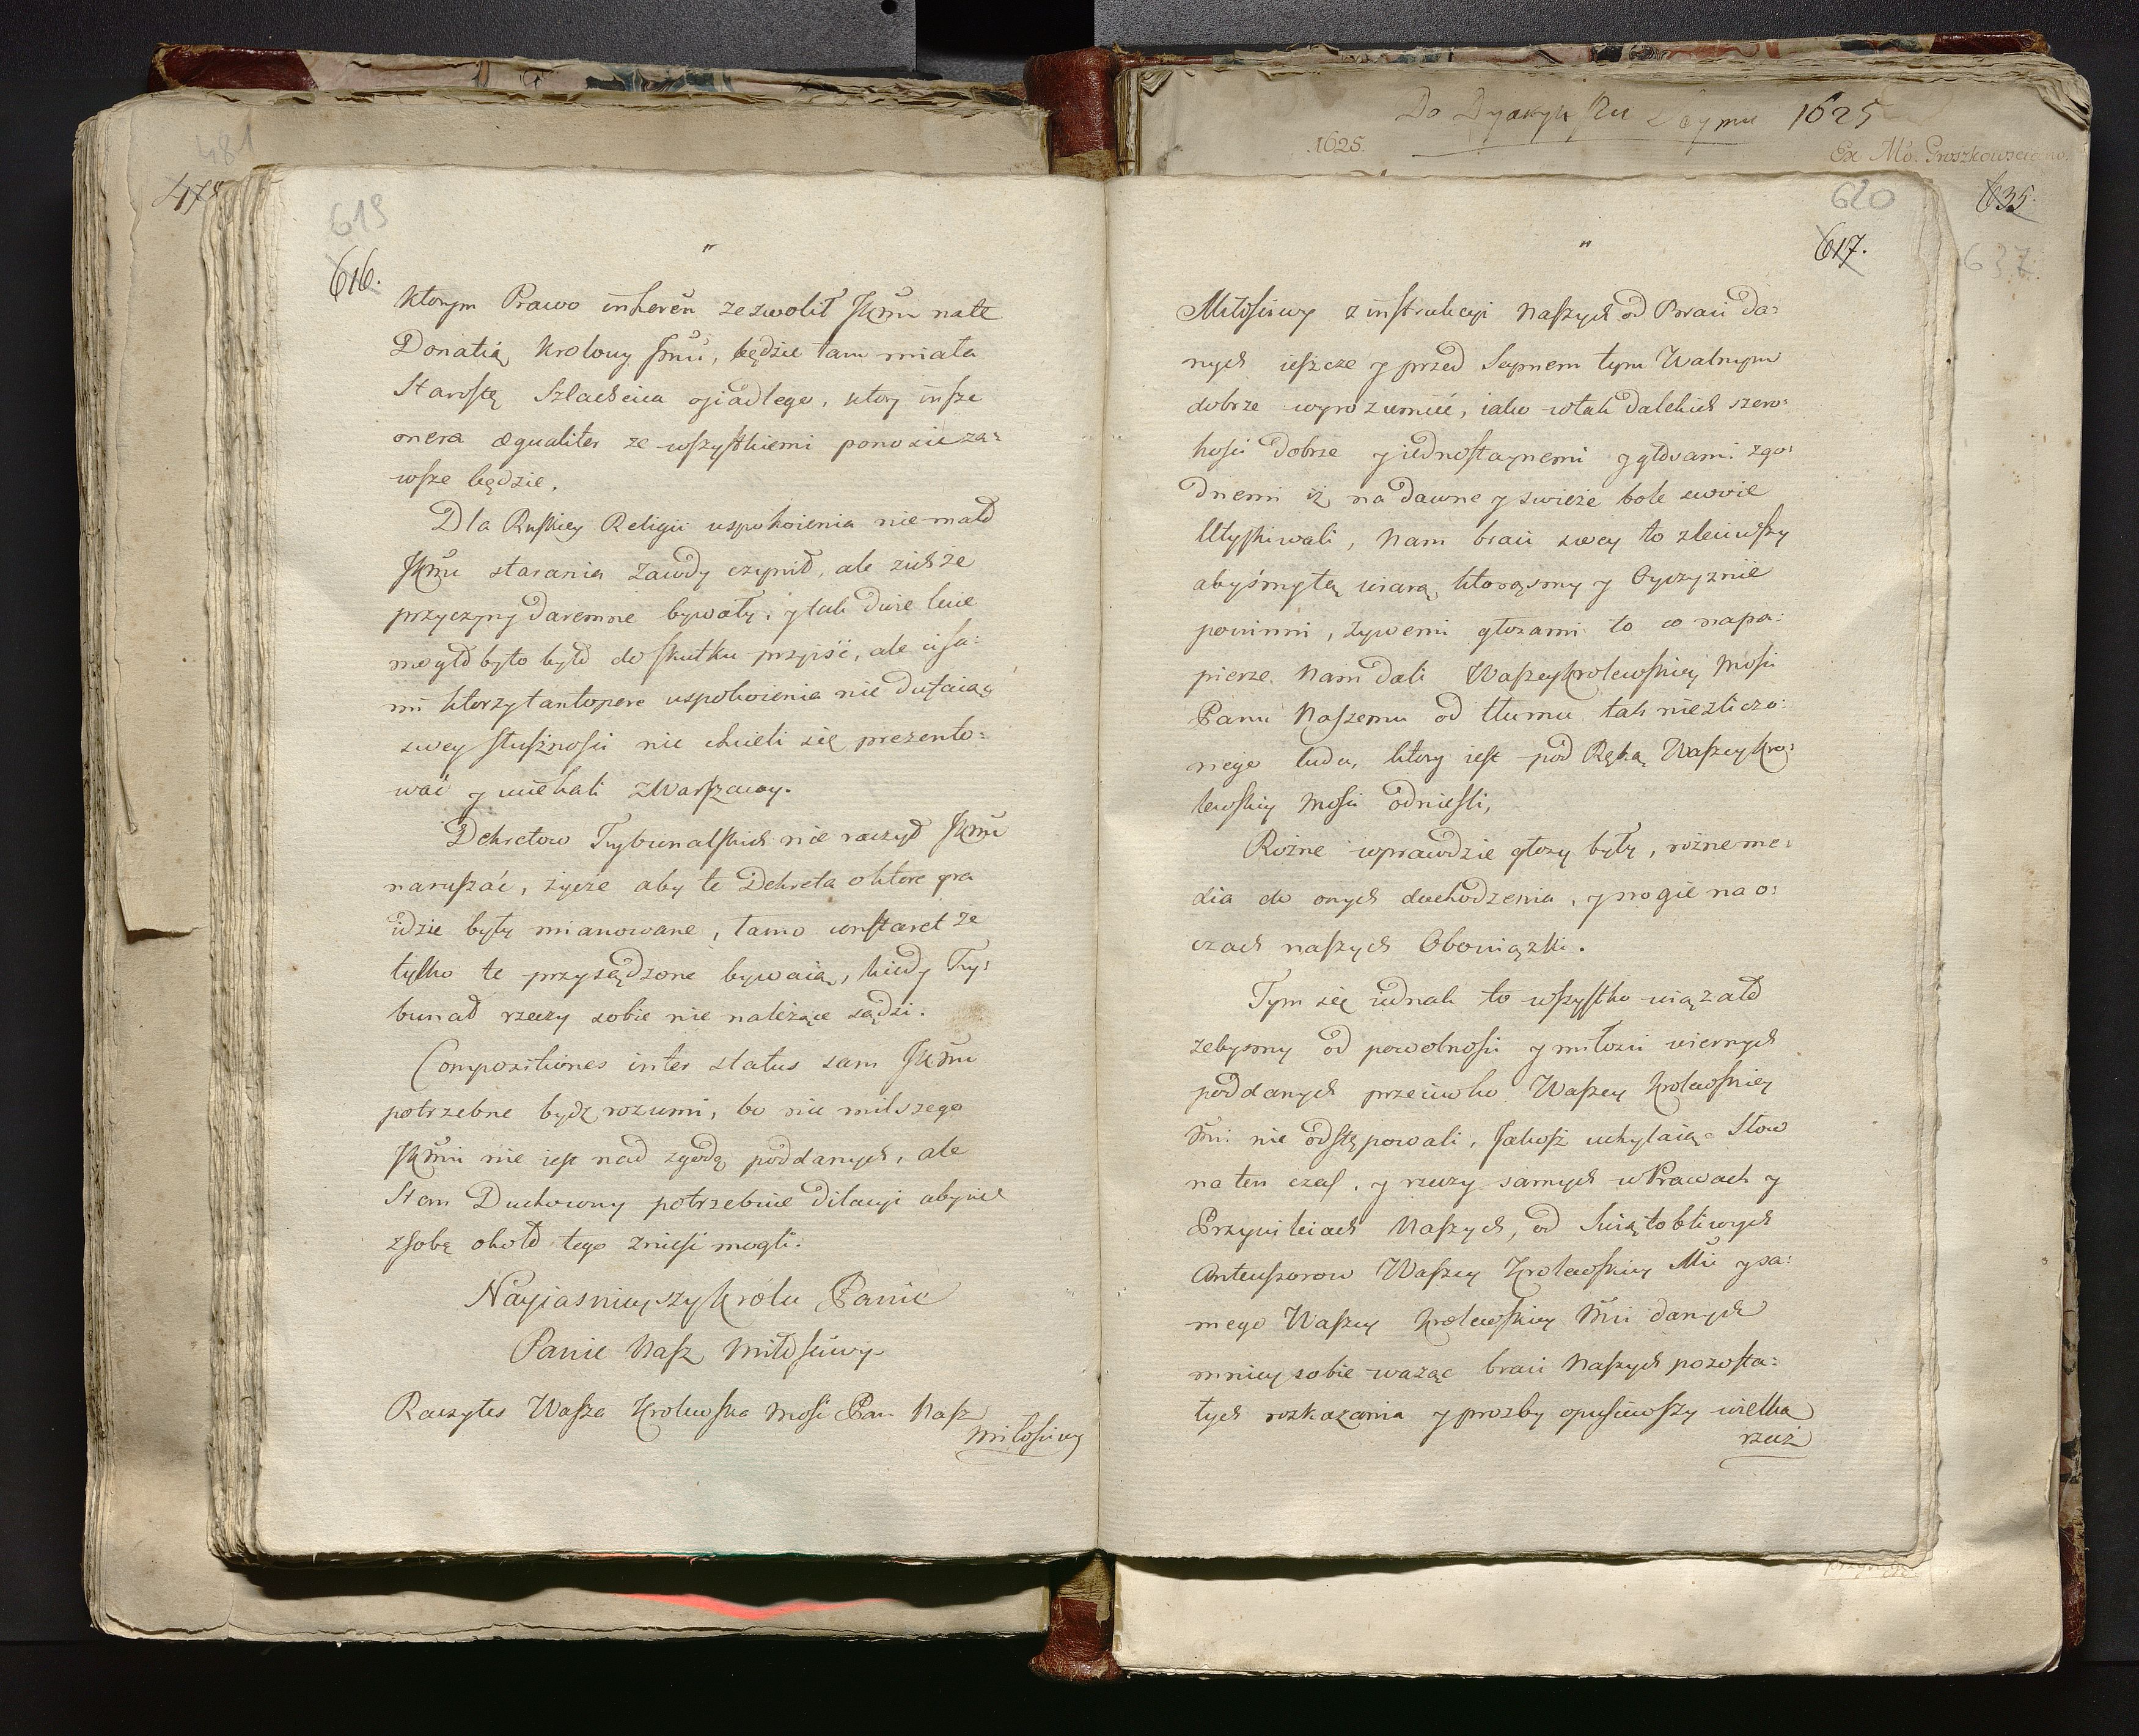 481
478
619
616.
"
ktorym Prawo inheren zezwolił JKMu natę
Donatią krolowy Jmu, będzie tam miała
Starostę Szlachcica osiadłego, ktory insze
onera æqualiter ze wszystkiemi ponosic za=
wsze będzie.
Dla Ruskiey Religii uspokoienia nie mało
JKMu starania zawdy czynił, ale
przyczyny daremne bywały, y tak
mogło było było do skutku przyiść, ale cisa=
mi ktorzy tantopere uspokoienia nie dufaiąc
swey słuszności nie chcieli się prezento=
wać y uiechali z Warszawy.
Dekretow Trybunalskich nie raczył JKMu
naruszać, życzé aby te Dekreta o ktore gra
idzie były mianowane, tamo constaret ze
tylko te przysądzone bywaią, kiedy Try=
bunał rzeczy sobie nie należące sądzi.
Compositiones inter status sam JKMu
potrzebne bydz rozumi, bo nic milszego
JKMu nie iest nad zgodę poddanych, ale
Stan Duchowny potrzebuie dilacyi aby się
z sobą około tego znieść mogli.
Nayiasnieyszy krolu Panie
Panie Nasz Miłościwy.
Raczyłes Wasza Krolewska Mość Pan Nasz
Miłościwy
Do Dyaryuszu Seymu 1625
1625.
Ex Mo. Groszkowsciano.
635.
637.
620
617.
"
Miłościwy z instrukcyi Naszych od Braci da=
nych ieszcze y przed Seymem tym Walnym
dobrze wyrozumieć, iako wtak dalekich szero=
kości dobrze y iednostaynemi y głosami zgo=
dnemi iż na dawne y swieże bole swoie
Utyskiwali, Nam braci swey to zleciwszy
abyśmy tę wiarą, którąsmy y Oyczyznie
powinni, żywemi głosami to co na pa=
pierze Nam dali Waszey Krolewskiey Mości
Panu Naszemu od tłumu tak niezliczo=
nego ludu, ktory iest pod Ręką Waszey Kro=
lewskiey Mości odniesli,
Rożne wprawdzie głosy były, rożne me=
dia do onych dochodzenia, y srogie na o=
czach naszych Obowiązki.
Tym się iednak to wszystko wiązało
zebysmy od powolności y miłości wiernych
poddanych przeciwko Waszey Krolewskiey
Mci nie odstępowali, Jakosz uchylaiąc Słow
na ten czas, y rzeczy samych w Prawach y
Przywileiach Naszych, od Swiątobliwych
Antecessorow Waszey Krolewskiey Mci y sa=
mego Waszey Krolewskiey Mci danych
mniey sobie ważąc braci Naszych pozosta=
łych rozkazania y prozby opuściwszy wielka
rzecz